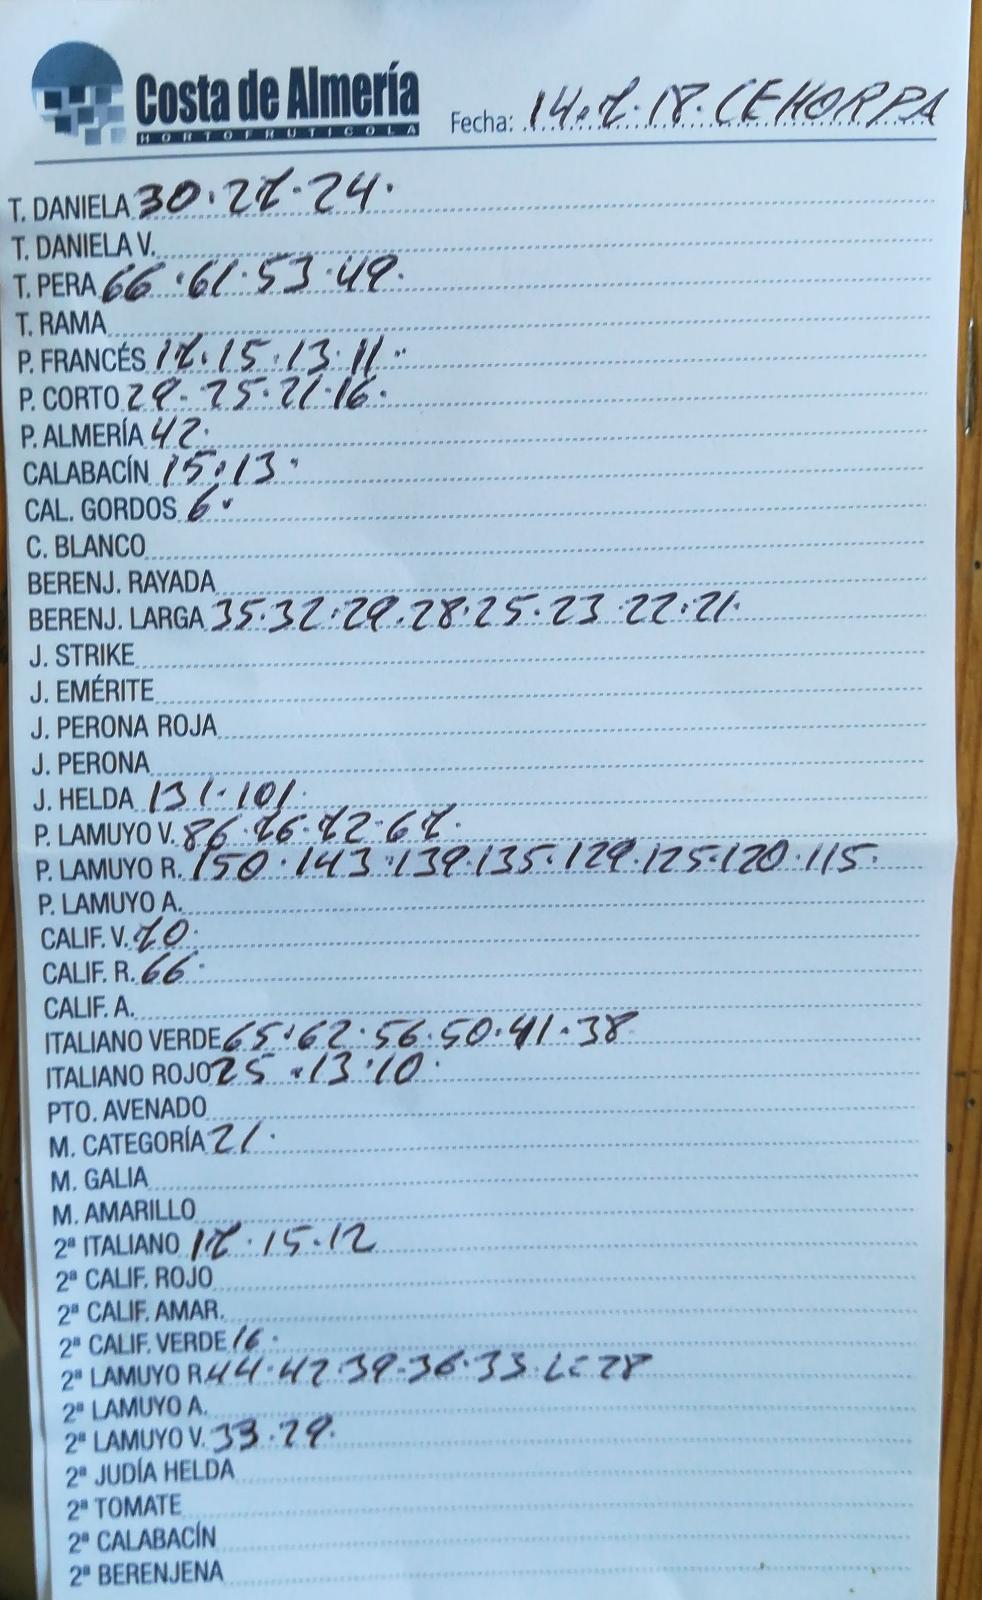 Costa de Almería
HORTOFRUTICOLA
Fecha: 14.7.18. CEHORPA
T. DANIELA 30.27.24.
T. DANIELA V.
T. PERA 66.61.53.49.
T. RAMA
P. FRANCÉS 17.15.13.11.
P. CORTO 29.25.21.16.
P. ALMERÍA 42.
CALABACÍN 15.13.
CAL. GORDOS 6.
C. BLANCO
BERENJ. RAYADA
BERENJ. LARGA 35.32.29.28.25.23.22.21.
J. STRIKE
J. EMÉRITE
J. PERONA ROJA
J. PERONA
J. HELDA 131.101.
P. LAMUYO V. 86.76.72.67.
P. LAMUYO R. 150.143.139.135.129.125.120.115.
P. LAMUYO A.
CALIF. V. 70.
CALIF. R. 66.
CALIF. A.
ITALIANO VERDE 65.62.56.50.41.38
ITALIANO ROJO 25.13.10.
PTO. AVENADO
M. CATEGORÍA 21.
M. GALIA
M. AMARILLO
2ª ITALIANO 17.15.12
2ª CALIF. ROJO
2ª CALIF. AMAR.
2ª CALIF. VERDE 16.
2ª LAMUYO R. 44.42.39.36.33. 28
2ª LAMUYO A.
2ª LAMUYO V. 33.29.
2ª JUDÍA HELDA
2ª TOMATE
2ª CALABACÍN
2ª BERENJENA